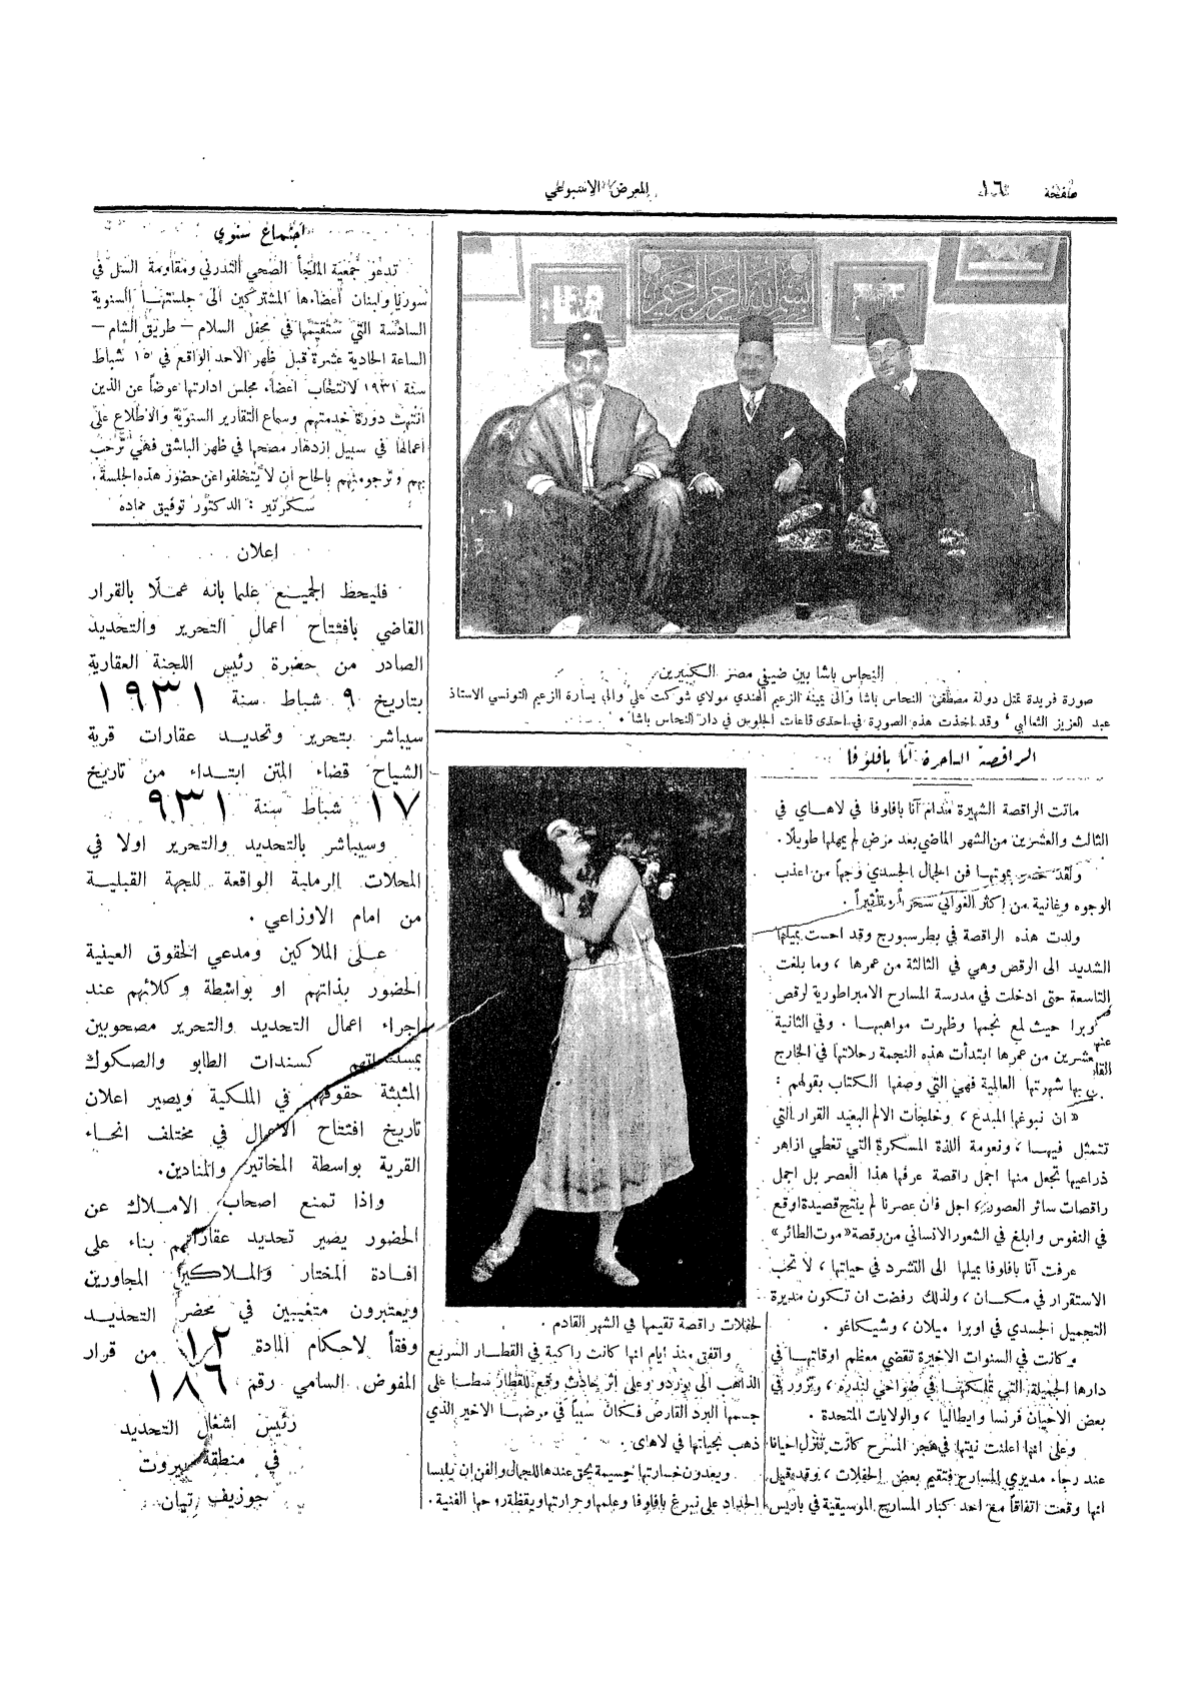 صفحة ١٦
المعرض الاسبوعي
بسم الله الرحمن الرحيم
النحاس باشا بين ضيفي مصر الكبيرين
صورة فريدة تمثل دولة مصطفى النحاس باشا والى يمينه الزعيم الهندي مولاي شوكت علي والى يساره الزعيم التونسي الاستاذ
عبد العزيز الثعالبي ، وقد اخذت هذه الصورة في احدى قاعات الجلوس في دار النحاس باشا .
الراقصة الساحرة آنا بافلوفا
ماتت الراقصة الشهيرة مدام آنا بافلوفا في لاهاي في
الثالث والعشرين من الشهر الماضي بعد مرض لم يمهلها طويلًا .
ولقد خسر بموتها فن الجمال الجسدي وجهاً من اعذب
الوجوه وغانية من اكثر الغواني سحراً
ولدت هذه الراقصة في بطرسبورج وقد احست بميلها
الشديد الى الرقص وهي في الثالثة من عمرها ، وما بلغت
التاسعة حتى ادخلت في مدرسة المسارح الامبراطورية لرقص
وبرا حيث لمع نجمها وظهرت مواهبها . وفي الثانية
عشرين من عمرها ابتدأت هذه النجمة رحلاتها في الخارج
بها شهرتها العالمية فهي التي وصفها الكتاب بقولهم :
« ان نبوغها المبدع ، وخلجات الالم البعيد القرار التي
تتمثل فيها ، ونعومة اللذة المسكرة التي تغطي ازاهر
ذراعيها تجعل منها اجمل راقصة عرفها هذا العصر بل اجمل
راقصات سائر العصور ، اجل فان عصرنا لم ينتج قصيدة اوقع
في النفوس وابلغ في الشعور الانساني من رقصة « موت الطائر »
عرفت آنا بافلوفا بميلها الى التشرد في حياتها ، لا تحب
الاستقرار في مكان ، ولذلك رفضت ان تكون مديرة
التجميل الجسدي في اوبرا ميلان ، وشيكاغو .
وكانت في السنوات الاخيرة تقضي معظم اوقاتها في
دارها الجميلة التي تملكتها في ضواحي لندره ، وتزور في
بعض الاحيان فرنسا وايطاليا ، والولايات المتحدة .
وعلى انها اعلنت نيتها في هجر المسرح كانت تنزل احيانا
عند رجاء مديري المسارح فتقيم بعض الحفلات ، وقد قيل
انها وقعت اتفاقاً مع احد كبار المسارح الموسيقية في باريس
لحفلات راقصة تقيمها في الشهر القادم .
واتفق منذ ايام انها كانت راكبة في القطار السريع
الذاهب الى بوردو وعلى اثر حادث وقع للقطار سطا على
جسمها البرد القارص فكان سبباً في مرضها الاخير الذي
ذهب بحياتها في لاهاى .
ويعدون خسارتها جسيمة يحق عندها للجمال والفن ان يلبسا
الحداد على نبوغ بافلوفا وعلمها وحرارتها ويقظة روحها الفنية .
اجتماع سنوي
تدعو جمعية الملجأ الصحي التدرني ومقاومة السل في
سوريا ولبنان أعضاءها المشتركين الى جلستها السنوية
السادسة التي ستقيمها في محفل السلام – طريق الشام –
الساعة الحادية عشرة قبل ظهر الاحد الواقع في ١٥ شباط
سنة ١٩٣١ لانتخاب اعضاء مجلس ادارتها عوضاً عن الذين
انتهت دورة خدمتهم وسماع التقارير السنوية والاطلاع على
اعمالها في سبيل ازدهار مصحها في ظهر الباشق فهي ترحب
بهم وترجو منهم بالحاح ان لا يتخلفوا عن حضور هذه الجلسة .
سكرتير : الدكتور توفيق حماده
اعلان
فليحظ الجميع علما بانه عملًا بالقرار
القاضي بافتتاح اعمال التحرير والتحديد
الصادر من حضرة رئيس اللجنة العقارية
بتاريخ ٩ شباط سنة ١٩٣١
سيباشر بتحرير وتحديد عقارات قرية
الشياح قضاء المتن ابتداء من تاريخ
١٧ شباط سنة ٩٣١
وسيباشر بالتحديد والتحرير اولا في
المحلات الرملية الواقعة للجهة القبلية
من امام الاوزاعي .
على الملاكين ومدعي الحقوق العينية
الحضور بذاتهم او بواسطة وكلائهم عند
اجراء اعمال التحديد والتحرير مصحوبين
بمستنداتهم كسندات الطابو والصكوك
المثبتة حقوقهم في الملكية ويصير اعلان
تاريخ افتتاح الاعمال في مختلف انحاء
القرية بواسطة المخاتير والمنادين .
واذا تمنع اصحاب الاملاك عن
الحضور يصير تحديد عقاراتهم بناء على
افادة المختار والملاكين المجاورين
ويعتبرون متغيبين في محضر التحديد
وفقاً لاحكام المادة ١٢ من قرار
المفوض السامي رقم ١٨٦
رئيس اشغال التحديد
في منطقة بيروت
جوزيف تيان